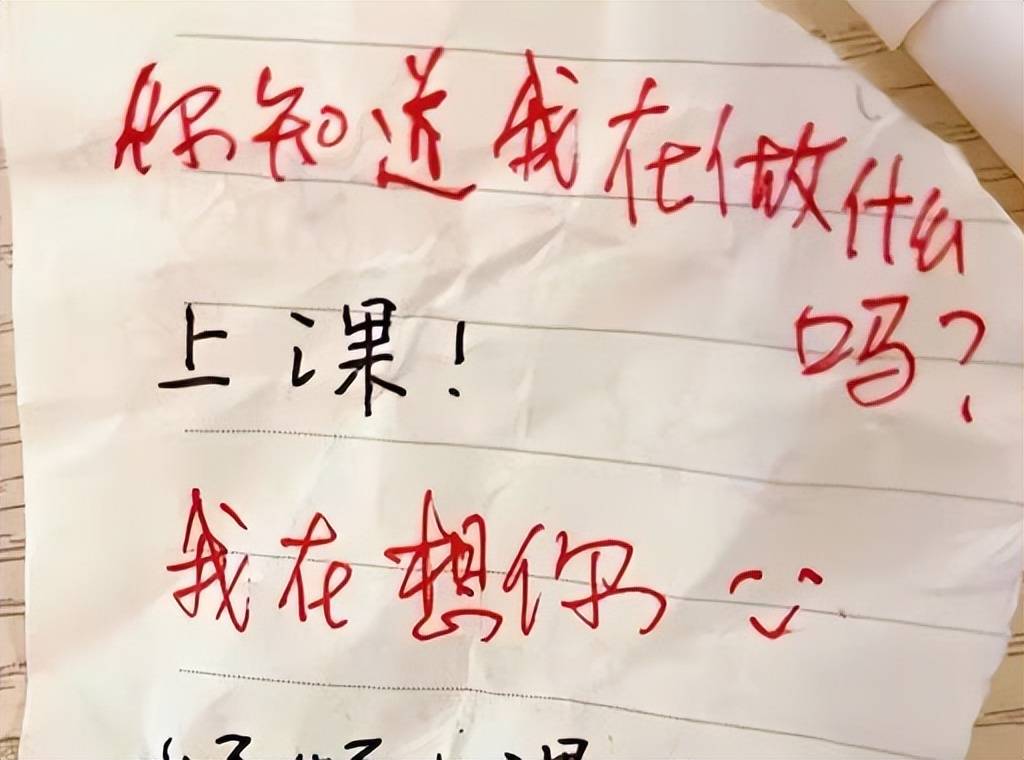 你知道我在做什么
吗?
上课!
我在想你